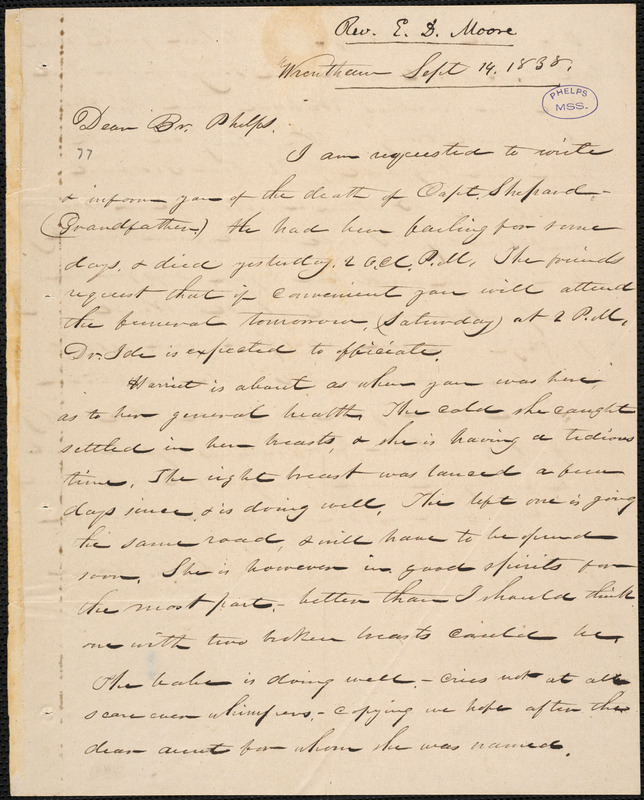 Rev. E. D. Moore
Wrentham Sept 14. 1838.
PHELPS
MSS.
Dear Br. Phelps.
77
I am requested to write
& inform you of the death of Capt. Shepard -
(Grandfather.) He had been failing for some
days, & died yesterday, 2 O.Cl. P.M. The friends
request that if convenient you will attend
the funeral tomorrow, (Saturday) at 2 P.M.
Dr. Ide is expected to officiate.
Harriet is about as when you was here
as to her general health. The cold she caught
settled in her breasts, & she is having a tedious
time. The right breast was lanced a few
days since & is doing well. The left one is going
the same road, & will have to be opened
soon. She is however in good spirits for
the most part - better than I should think
one with two broken breasts could be.
The babe is doing well - cries not at all
scarce even whimpers, - copying we hope after the
dear aunt for whom she was named.